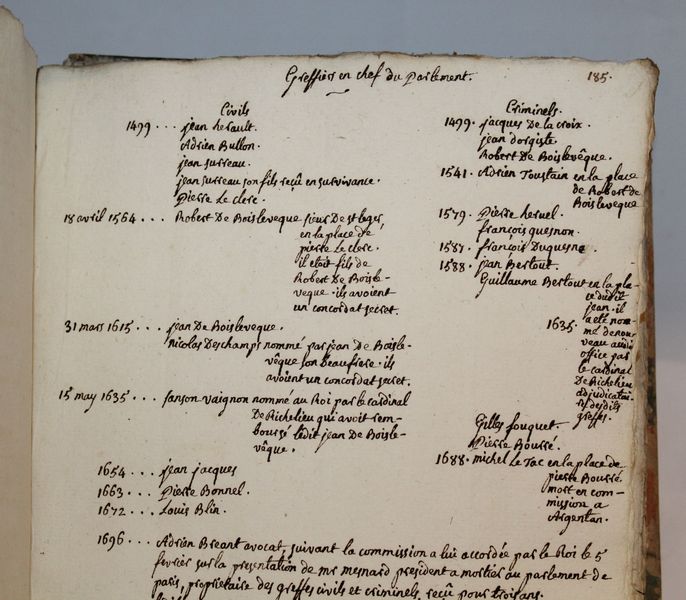 Greffiers en chef du Parlement.
185.
Civils
1499 . . . jean herault.
Adrien Bullon.
jean surreau.
jean surreau son fils reçu en survivance.
Pierre Le clerc.
18 avril 1564 . . . Robert De Boisleveque sieur De st leger,
en la place de
pierre Le clerc.
il etoit fils de
Robert De Boisle-
veque. ils avoient
un concordat secret.
31 mars 1615 . . . jean De Boisleveque.
nicolas Deschamps nommé par jean De Boisle-
vêque son Beaufrere. ils
avoient un concordat secret.
15 may 1635 . . . sanson vaignon nommé au Roi par le cardinal
De Richelieu qui avoit rem-
boursé ledit jean De Boisle-
vêque.
1654 . . . jean jacques
1663 . . . Pierre Bonnel.
1672 . . . Louis Blin.
Criminels.
1499. jacques De la croix.
jean dorgiste
Robert De Boislevêque.
1541. Adrien Toustain en la place
de Robert de
Boisleveque
1579. Pierre heruel.
françois quesnon.
1587. françois Duquesne.
1588. jean Bertout.
Guillaume Bertout en la pla-
ce dudit
jean. il
1635. a été nom-
mé de nou-
veau audit
office par
le cardinal
De Richelieu
adjudicatai-
re desdits
greffes.
Gilles fouquet
Pierre Boursé.
1688. michel Le Tac en la place de
pierre Boursé
mort en com-
mission a
Argentan.
1696 . . . Adrien Breant avocat, suivant la commission a lui accordée par le Roi le 5
fevrier sur la presentation de mr mesnard president a mortier au parlement de
paris, proprietaire des greffes civils et criminels, reçu pour trois ans.